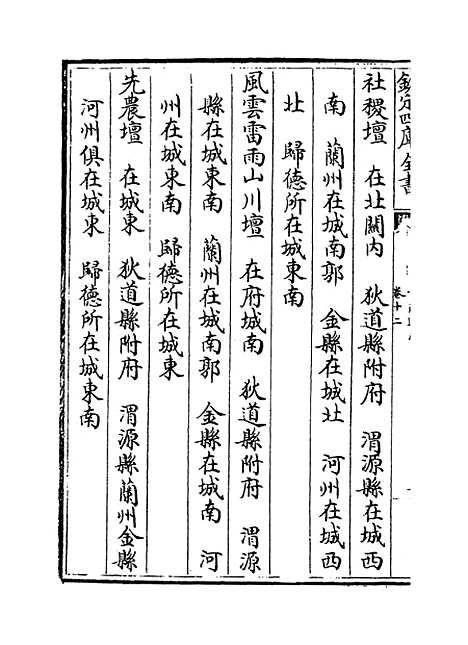 欽定四庫全書
卷十二
社稷壇　在北關內　狄道縣附府　渭源縣在城西
南　蘭州在城南郭　金縣在城北　河州在城西
北　歸德所在城東南
風雲雷雨山川壇　在府城南　狄道縣附府　渭源
縣在城東南　蘭州在城南郭　金縣在城南　河
州在城東南　歸德所在城東
先農壇　在城東　狄道縣附府　渭源縣蘭州金縣
河州俱在城東　歸德所在城東南